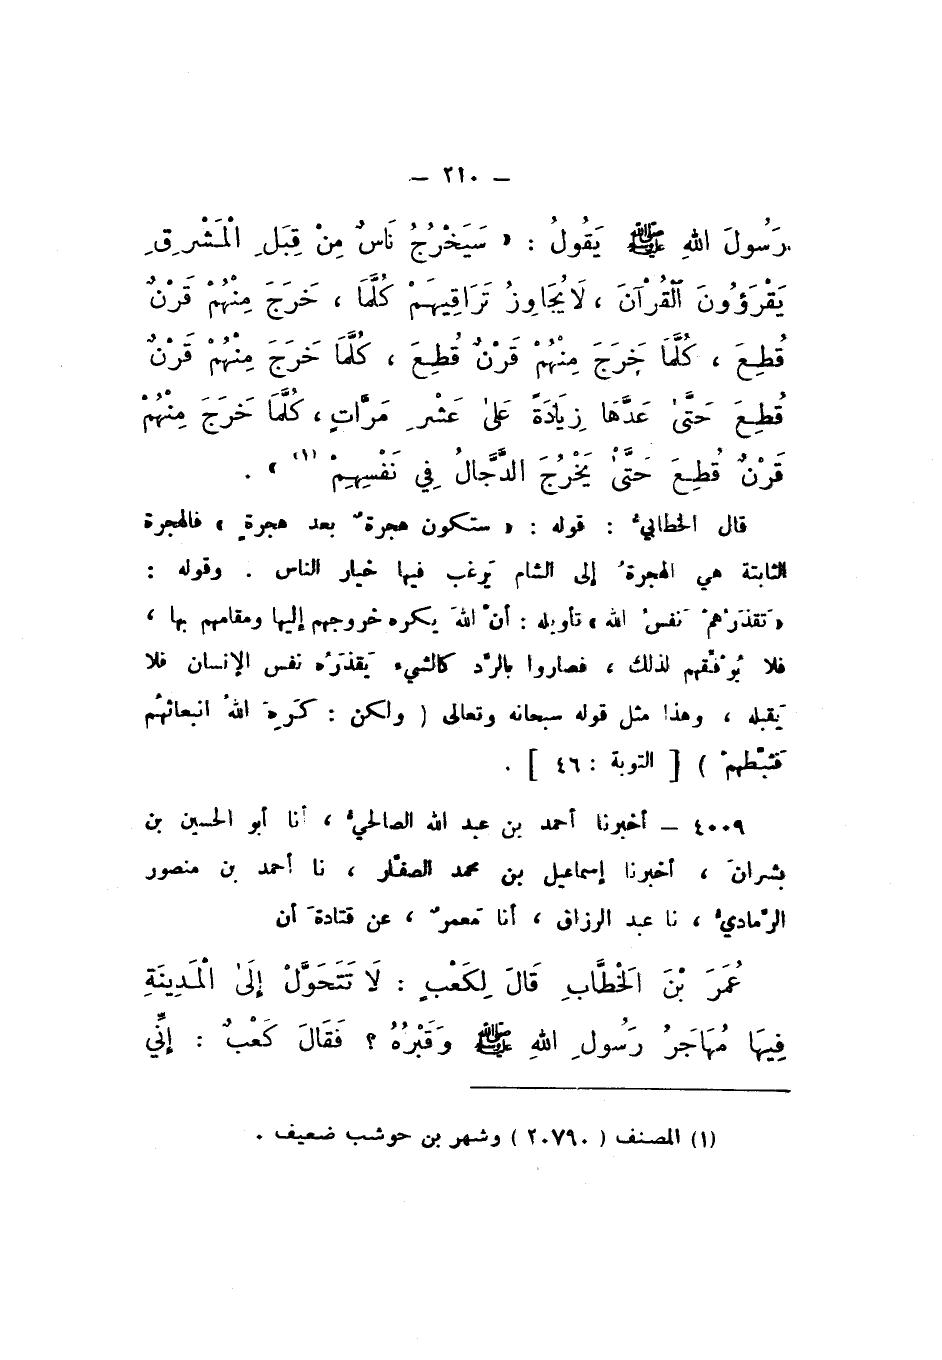 — ٢١٠ —
رَسُولَ اللهِ ﷺ يَقُولُ : « سَيَخْرُجُ نَاسٌ مِنْ قِبَلِ الْمَشْرِقِ
يَقْرَؤُونَ الْقُرْآنَ ، لَا يُجَاوِزُ تَرَاقِيَهِمْ كُلَّمَا ، خَرَجَ مِنْهُمْ قَرْنٌ
قُطِعَ ، كُلَّمَا خَرَجَ مِنْهُمْ قَرْنٌ قُطِعَ ، كُلَّمَا خَرَجَ مِنْهُمْ قَرْنٌ
قُطِعَ حَتَّىٰ عَدَّهَا زِيَادَةً عَلىٰ عَشْرِ مَرَّاتٍ ، كُلَّمَا خَرَجَ مِنْهُمْ
قَرْنٌ قُطِعَ حَتَّىٰ يَخْرُجَ الدَّجَّالُ فِي نَفْسِهِمْ (١) » .
قال الخطابيُّ : قوله : « ستكون هجرةٌ بعد هجرةٍ » فالهجرة
الثابتة هي الهجرةُ إلى الشام يَرغب فيها خيار الناس . وقوله :
« تَقذَرُهمْ نَفسُ الله » تأويله : أنّ اللهَ يكره خروجهم إليها ومقامهم بها ،
فلا يُوَفِّقهم لذلك ، فصاروا بالرَّد كالشيء يَقذَرُه نفس الإنسان فلا
يَقبله ، وهذا مثل قوله سبحانه وتعالى ( ولكن : كَرِهَ اللهُ انبعاثهُم
فَثَبَّطهمْ ) [ التوبة : ٤٦ ] .
٤٠٠٩ — أخبرنا أحمد بن عبد الله الصالحيُّ ، أنا أبو الحسين بن
بشرانَ ، أخبرنا إسماعيل بن محمد الصفّار ، نا أحمد بن منصور
الرَّماديُّ ، نا عبد الرزاق ، أنا مَعمرٌ ، عن قتادةَ أن
عُمَرَ بْنَ الْخَطَّابِ قَالَ لِكَعْبٍ : لَا تَتَحَوَّلْ إِلَىٰ الْمَدِينَةِ
فِيهَا مُهَاجَرُ رَسُولِ اللهِ ﷺ وَقَبْرُهُ ؟ فَقَالَ كَعْبٌ : إِنِّي
(١) المصنف ( ٢٠٧٩٠ ) وشهر بن حوشب ضعيف .